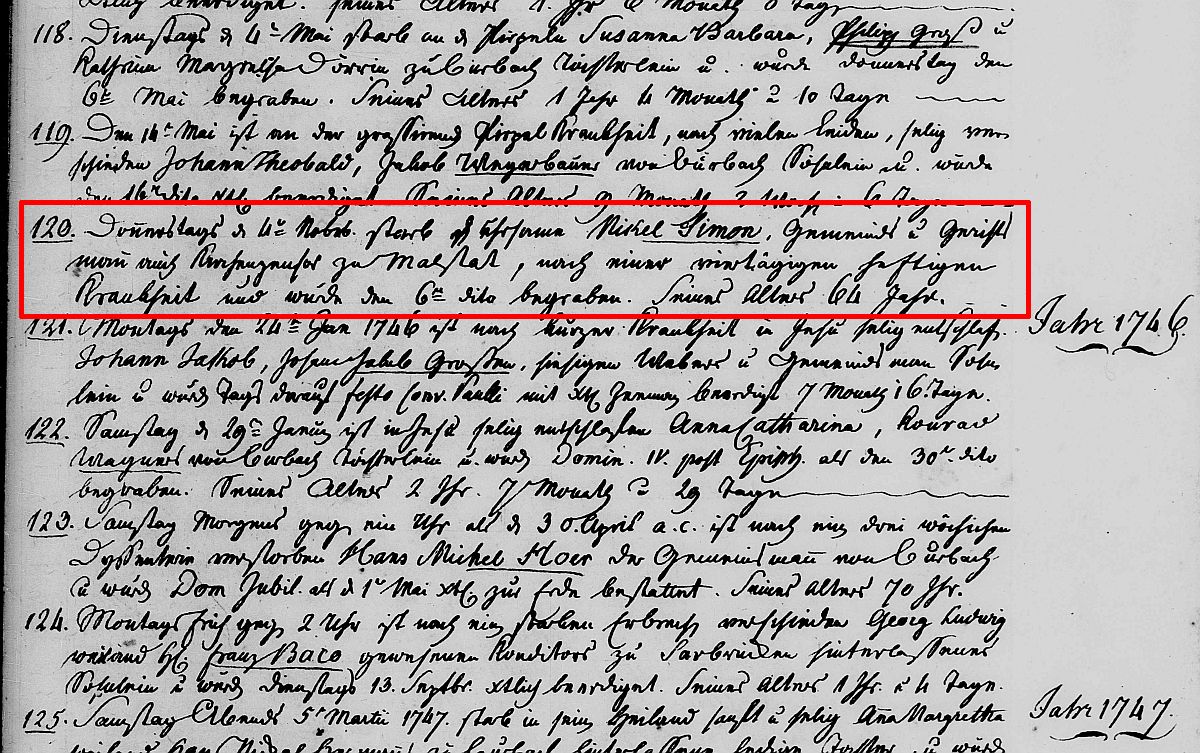 beerdiget. seines Alters 1. Jhr 6 Monath 8 Tage
118. Dienstags d 4t Mai starb an d Pirzeln Susanna Barbara, Philipp Groß u
Kathrina Margretha Dörrin zu Burbach Töchterlein u. wurde donnerstag den
6te Mai begraben. Seines Alters 1 Jahr 4 Monath u 10 Tage
119. Den 14t Mai ist an der grassirend Pirzel Krankheit, nach vielen Leiden, selig ver-
schieden Johann Theobald, Jakob Weyerbauer von Burbach Söhnlein u. wurde
den 16t dito xtl. beerdiget Seines Alters 9 Monath 2 Woch u 6 Tage
120. Donnerstags d 4te Nobrb. starb d Ehrsame Nickel Simon, Gemeinds u Gerichts
mann auch Kirchenzensor zu Malstat, nach einer viertägigen heftigen
Krankheit und wurde den 6te dito begraben. Seines Alters 64 Jahr.
121. Montags den 24te Jan 1746 ist nach kurzer Krankheit in Jesu selig entschlaf. Jahr 1746.
Johann Jakob, Johann Jakob Großen, hiesigen Webers u Gemeindsmann Söhn-
lein u wurd Tags darauf festo Conv. Paulli mit xtl. Zeremon beerdigt 7 Monath 16. Tage.
122. Samstag d 29te Januar ist in Jesu selig entschlafen Anna Catharina, Konrad
Wagners von Burbach Töchterlein u. wurd Domin. IV. post Epiph. als den 30t. dito
begraben. Seines Alters 2 Jhr. 7 Monath u 29 Tage
123. Samstag Morgens geg ein Uhr als d 30 April a.c. ist nach ein drei wöchichen
Dyssenterie verstorben Hans Michel Floer der Gemeinsmann von Burbach
u wurd Dom Jubil. als d 1t Mai xtl. zur Erde bestattet. Seines Alters 70 Jhr.
124. Montags früh geg 2 Uhr ist nach ein starken Erbrech verschieden Georg Ludwig
weiland H. Franz Baco gewesenen Konditors zu Sarbrücken hinterlassenes
Söhnlein u wurd dienstags 13. Septbr. xtlich beerdiget. Seines Alters 1 Jhr. u 4 Tage.
125. Samstag Abends 5t Martii 1747. starb in sein Heiland sanft u selig Anna Margretha Jahr 1747.
weiland Hans Nickel zu Burbach hinterlassene ledige Tochter u wurde